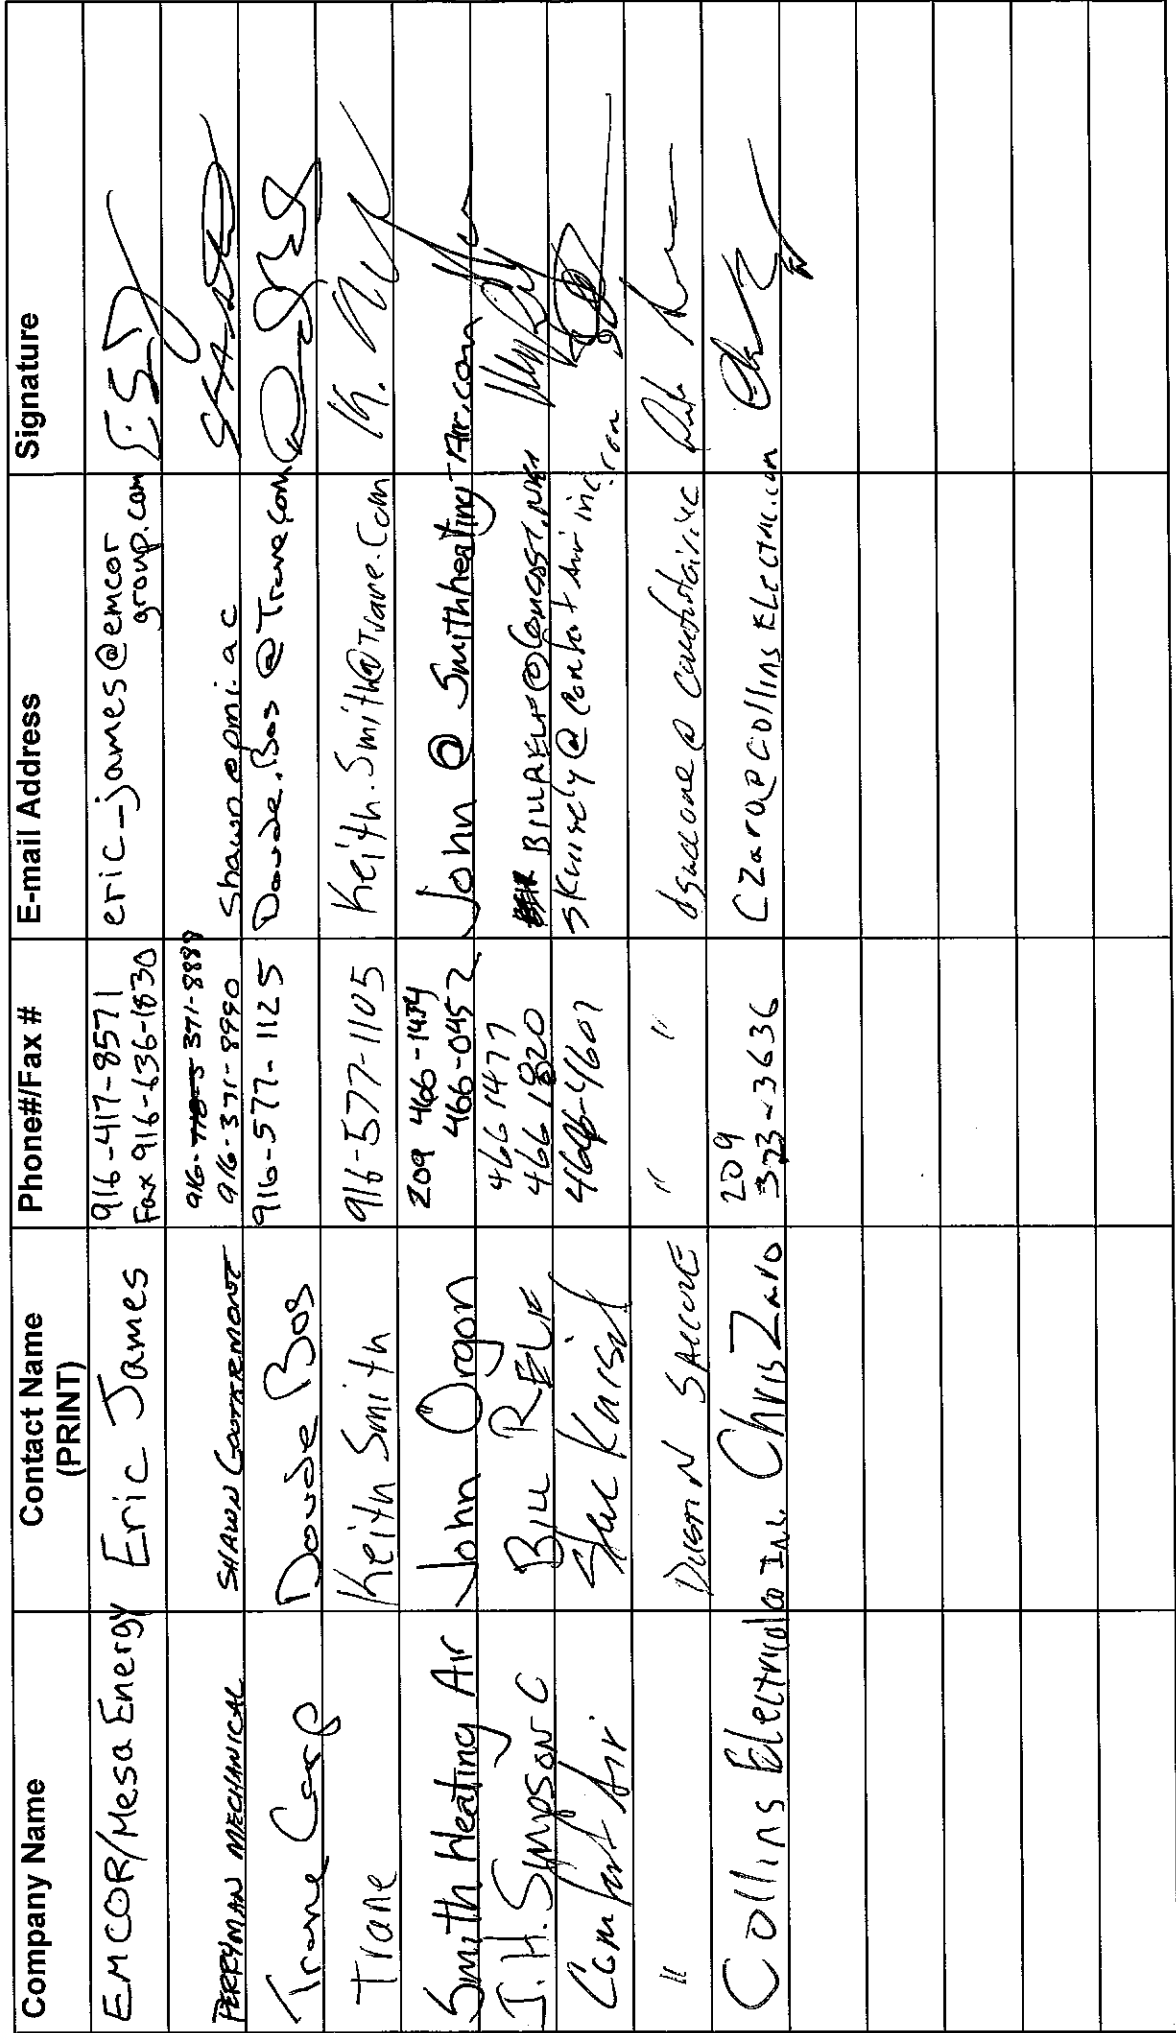 Company Name Contact Name (PRINT) Phone#/Fax # E-mail Address Signature
EMCOR/Mesa Energy Eric James 916-417-8571 Fax 916-636-1830 eric-james@emcor group.com
PERRYMAN MECHANICAL SHAWN 916- 371-8888 916-371-8990 Shawn@pmi.ac
Trane Corp Doude Bos 916-577-1125 Doude.Bos @Trane.com
Trane Keith Smith 916-577-1105 Keith.Smith@Trane.Com
Smith Heating Air John Orgon 209 466-1454 466-0452 John @ Smithheating-Air.com
J.H. SIMPSON C BILL RELF 466 1477 466 1820 BILLRELF@COMCAST.NET
Comfort Air 464-4601
" DUSTIN " "
Collins Electrical Co Inc. Chris Zaro 209 323-3636 CZaro@Collins ELECTRIC.com